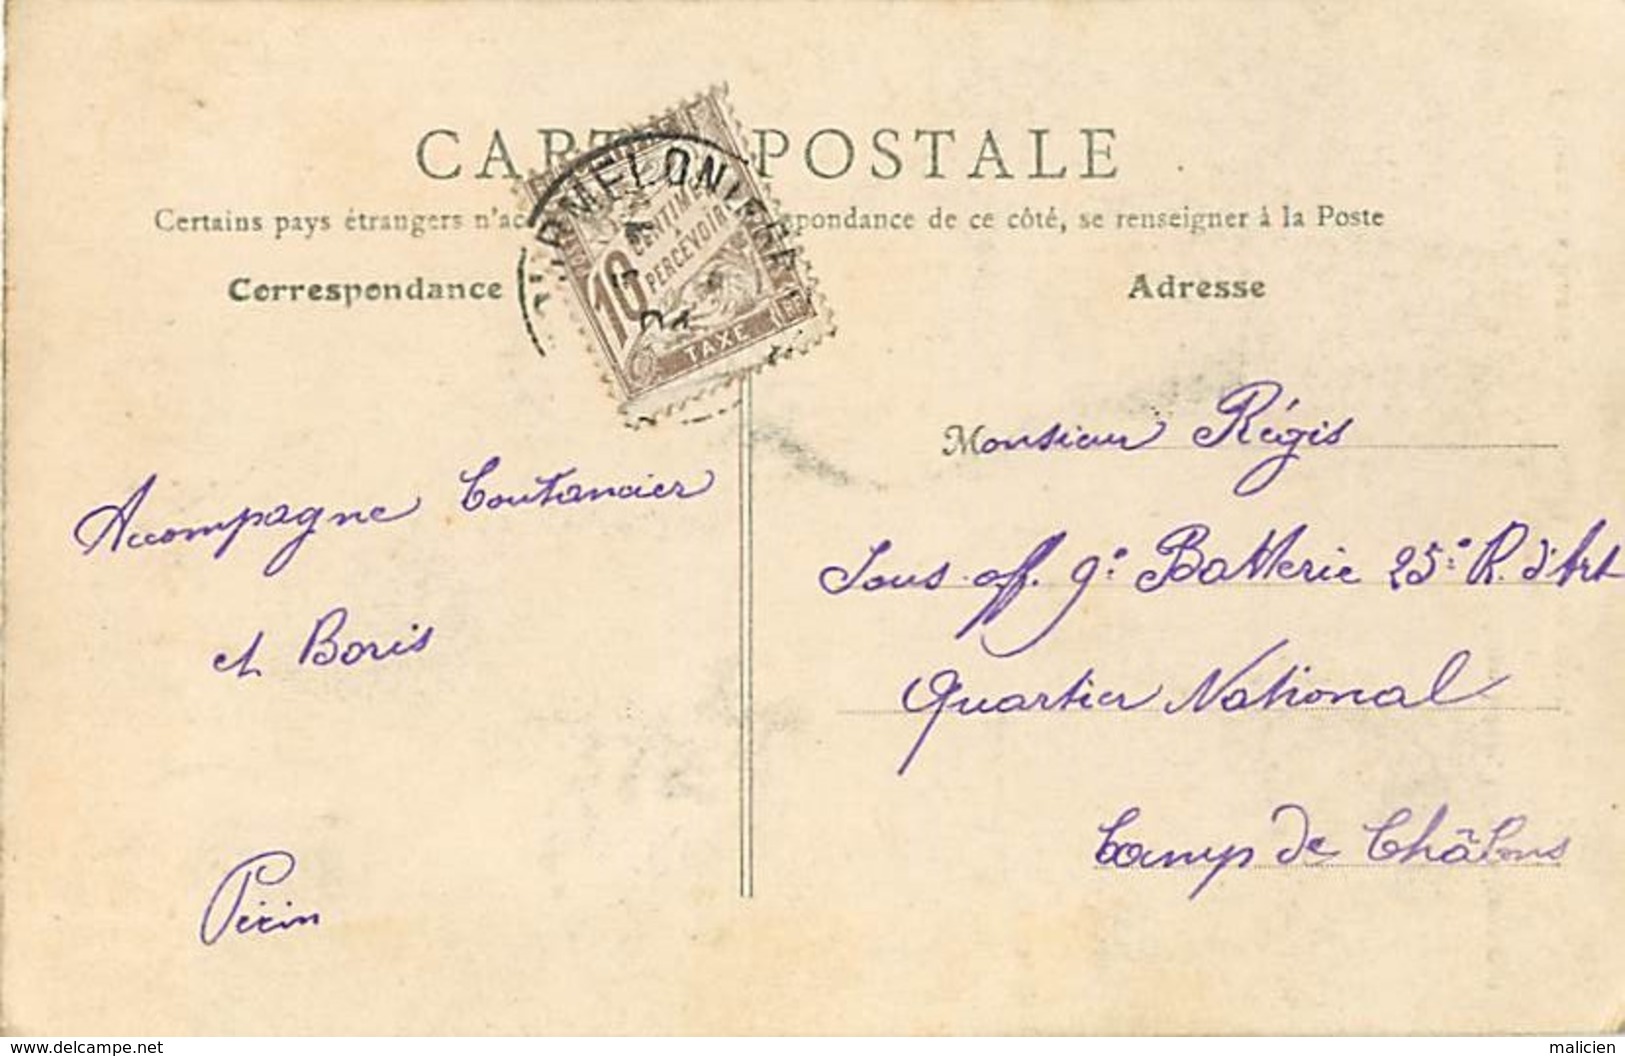 CARTE POSTALE
Certains pays étrangers n'ac pondance de ce côté, se renseigner à la Poste
Correspondance
Adresse
OURMELON
10 CENTIMES
À
PERCEVOIR
TAXE
Accompagne Coutancier
et Boris
Pirin
Monsieur Régis
Sous off. 9e Batterie 25e R. d'Art
Quartier National
Camp de Châlons
www.delcampe.net
malicien